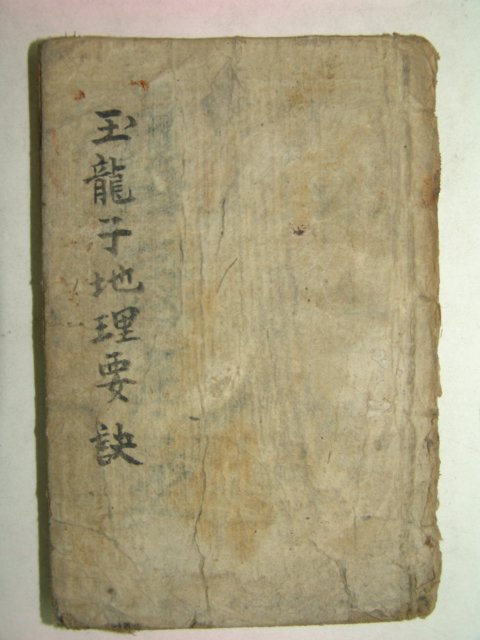 玉龍子地理要訣